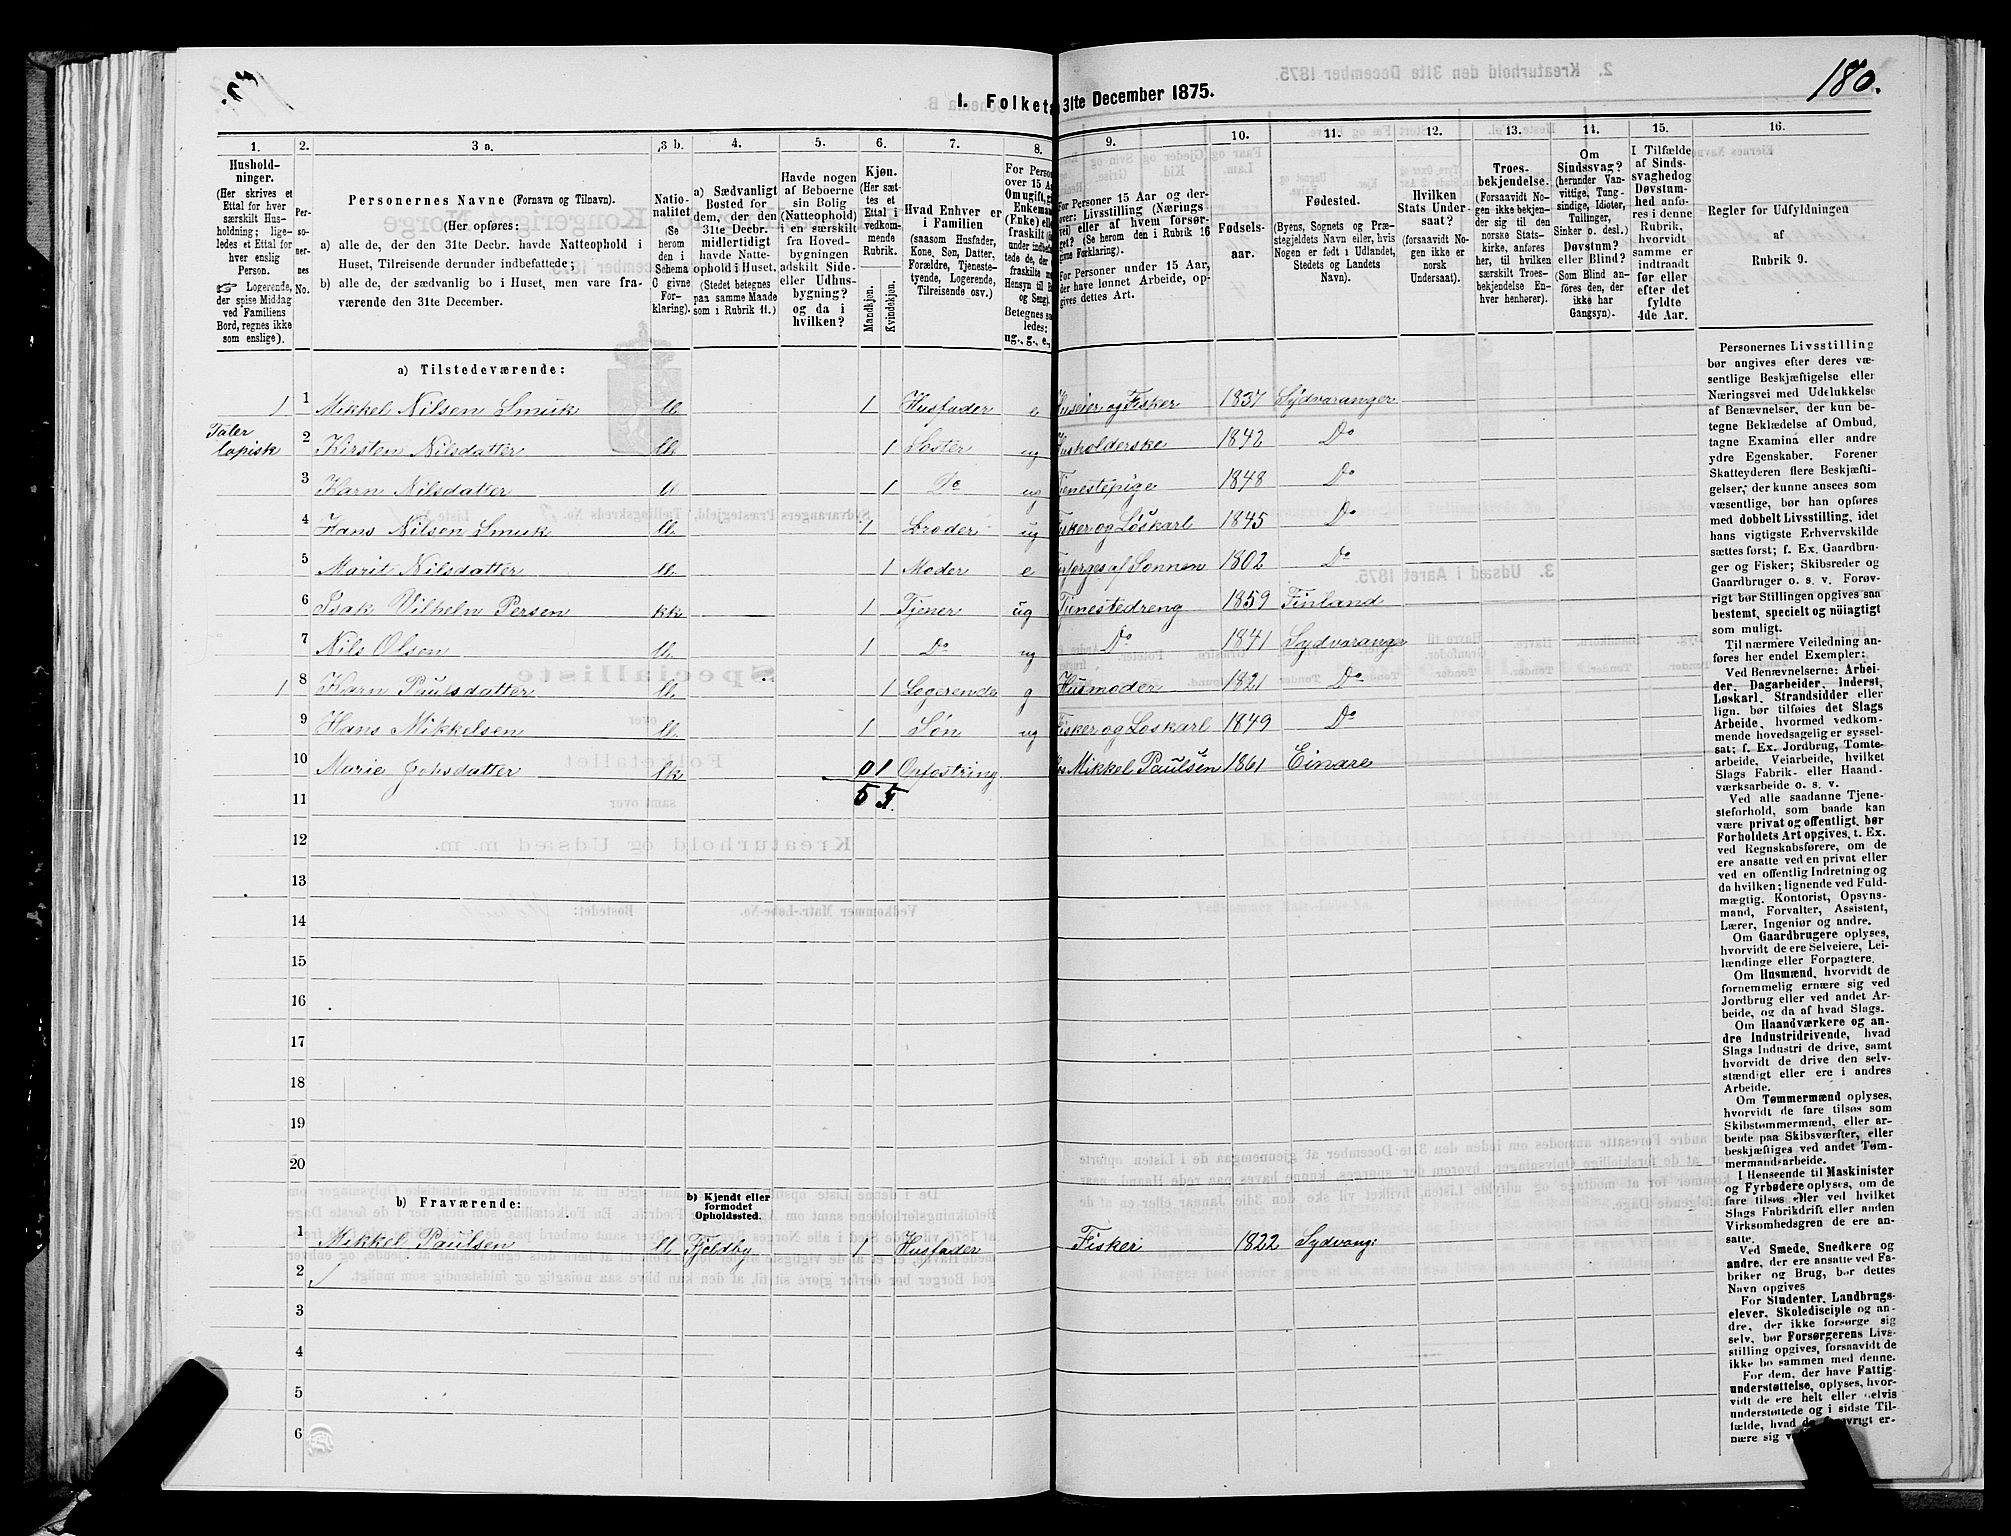 180.
1. Folketa
31te December 1875.
1.
2.
3 a.
3 b.
4.
5.
6.
7.
8.
9.
10.
11.
12.
13.
14.
15.
16.
Hushold-
ninger.
(Her skrives et
Ettal for hver
særskilt Hus-
holdning; lige-
ledes et Ettal for
hver enslig
Person.
☞ Logerende,
der spise Middag
ved Familiens
Bord, regnes ikke
som enslige).
Per-
so-
ner-
nes
No.
Personernes Navne (Fornavn og Tilnavn).
(Her opføres:
a) alle de, der den 31te Decbr. havde Natteophold i
Huset, Tilreisende derunder indbefattede;
b) alle de, der sædvanlig bo i Huset, men vare fra-
værende den 31te December.
Natio-
nalitet
(Se
herom
den i
Schema
C givne
For-
klaring).
a) Sædvanligt
Bosted for
dem, der den
31te Decbr.
midlertidigt
havde Natte-
ophold i Huset.
(Stedet betegnes
paa samme Maade
som i Rubrik 11.)
Havde nogen
af Beboerne
sin Bolig
(Natteophold)
i en særskilt
fra Hoved-
bygningen
adskilt Side-
eller Udhus-
bygning?
og da i
hvilken?
Kjøn.
(Her sæt-
tes et
Ettal i
vedkom-
mende
Rubrik.
Mandkjøn.
Kvindekjøn.
Hvad Enhver er
i Familien
(saasom Husfader,
Kone, Søn, Datter,
Forældre, Tjeneste-
tyende, Logerende,
Tilreisende osv.)
For Person
over 15 Aa
Om ugift, g
Enkeman
(Enke) elle
fraskilt (
under indb
tede de, de
fraskilte m
Hensyn til B
og Seng).
Betegnes sa
ledes:
ug., g., e.,
For Personer 15 Aar og der-
over: Livsstilling (Nærings
vei) eller af hvem forsør-
get? (Se herom den i Rubrik 16
givne Forklaring).
For Personer under 15 Aar,
der have lønnet Arbeide, op-
gives dettes Art.
Fødsels-
aar.
Fødested.
(Byens, Sognets og Præ-
stegjeldets Navn eller, hvis
Nogen er født i Udlandet,
Stedets og Landets
Navn).
Hvilken
Stats Under-
saat?
(forsaavidt No-
gen ikke er
norsk
Undersaat).
Troes-
bekjendelse.
(Forsaavidt No-
gen ikke bekjen-
der sig til den
norske Stats-
kirke, anføres
her, til hvilken
særskilt Troes-
bekjendelse En-
hver henhører).
Om
Sindssvag?
(herunder Van-
vittige, Tung-
sindige, Idioter,
Tullinger,
Sinker o. desl.)
Døvstum?
eller Blind?
(Som Blind an-
føres den, der
ikke har
Gangsyn).
I Tilfælde
af Sinds-
svaghed og
Døvstum-
hed anfø-
res i denne
Rubrik,
hvorvidt
samme er
indtraadt
før eller
efter det
fyldte
4de Aar.
Regler for Udfyldningen
af
Rubrik 9.
a) Tilstedeværende:
1 1 Mikkel Nilsen Smuk ll. 1 Husfader e Huseier og Fisker 1837 Sydvaranger
Taler
lapisk 2 Kirsten Nilsdatter ll. 1 Søster ug Husholderske 1842 Do
3 Karn Nilsdatter ll 1 Do ug Tjenestepige 1848 Do
4 Hans Nilsen Smuk ll. 1 Broder ug Fisker og Løskarl 1845 Do
5 Marit Nilsdatter ll. 1 Moder e forsørges af Sønnen 1802 Do
6 Isak Vilheln Persen kk 1 Tjener ug Tjenestedreng 1859 Finland
7 Nils Olsen ll. 1 Do ug Do 1841 Sydvaranger
1 8 Karn Paulsdatter ll. 1 Logerende g Husmoder 1821 Do
9 Hans Mikkelsen ll. 1 Søn ug Fisker og Løskarl 1849 Do
10 Marie Johsdatter lk 01 Opfostring hos Mikkel Paulsen 1861 Einare
11 5 5
12
13
14
15
16
17
18
19
20
b) Fraværende:
b) Kjendt eller
formodet
Opholdssted.
1 Mikkel Paulsen ll Fjeldby 1 Husfader Fisker 1822 Sydvang:
2
3
4
5
6
Personernes Livsstilling
bør angives efter deres væ-
sentlige Beskjæftigelse eller
Næringsvei med Udelukkelse
af Benævnelser, der kun be-
tegne Beklædelse af Ombud,
tagne Examina eller andre
ydre Egenskaber. Forener
Skatteyderen flere Beskjæfti-
gelser; der kunne ansees som
væsentlige, bør han opføres
med dobbelt Livsstilling, idet
hans vigtigste Erhvervskilde
sættes først; f. Ex. Gaardbru-
ger og Fisker; Skibsreder og
Gaardbruger o. s. v. Forøv-
rigt bør Stillingen opgives saa
bestemt, specielt og nøiagtigt
som muligt.
Til nærmere Veiledning an-
føres her endel Exempler:
Ved Benævnelserne: Arbei-
der, Dagarbeider, Inderst,
Løskarl, Strandsidder eller
lign. bør tilføies det Slags
Arbeide, hvormed vedkom-
mende hovedsagelig er syssel-
sat; f. Ex. Jordbrug, Tomte-
arbeide, Veiarbeide, hvilket
Slags Fabrik- eller Haand-
værksarbeide o. s. v.
Ved alle saadanne Tjene-
steforhold, som baade kan
være privat og offentligt, bør
Forholdets Art opgives, t. Ex.
ved Regnskabsførere, om de
ere ansatte ved en privat eller
ved en offentlig Indretning og
da hvilken; lignende ved Fuld-
mægtig, Kontorist, Opsyns-
mand, Forvalter, Assistent,
Lærer, Ingeniør og andre.
Om Gaardbrugere oplyses,
hvorvidt de ere Selveiere, Lei-
lændinge eller Forpagtere.
Om Husmænd, hvorvidt de
fornemmelig ernære sig ved
Jordbrug eller ved andet Ar-
beide, og da af hvad Slags.
Om Haandværkere og an-
dre Industridrivende, hvad
Slags Industri de drive, samt
hvorvidt de drive den selv-
stændigt eller ere i andres
Arbeide.
Om Tømmermænd oplyses,
hvorvidt de fare tilsøs som
Skibstømmermænd, eller ar-
beide paa Skibsværfter, eller
beskjæftiges ved andet Tøm-
mermandsarbeide.
I Henseende til Maskinister
og Fyrbødere oplyses, om de
fare tilsøs eller ved hvilket
Slags Fabrikdrift eller anden
Virksomhedsgren de ere an-
satte.
Ved Smede, Snedkere og
andre, der ere ansatte ved Fa-
briker og Brug, bør dettes
Navn opgives
For Studenter, Landbrugs-
elever, Skoledisciple og an-
dre, der ikke forsørge sig
selv, bør Forsørgerens Livs-
stilling opgives, forsaavidt de
ikke bo sammen med denne.
For dem, der have Fattig-
understøttelse, oplyses, hvor-
vidt de ere helt eller delvis
understøttede og i sidste Til-
fælde, hvad de forøvrigt er-
nære sig v